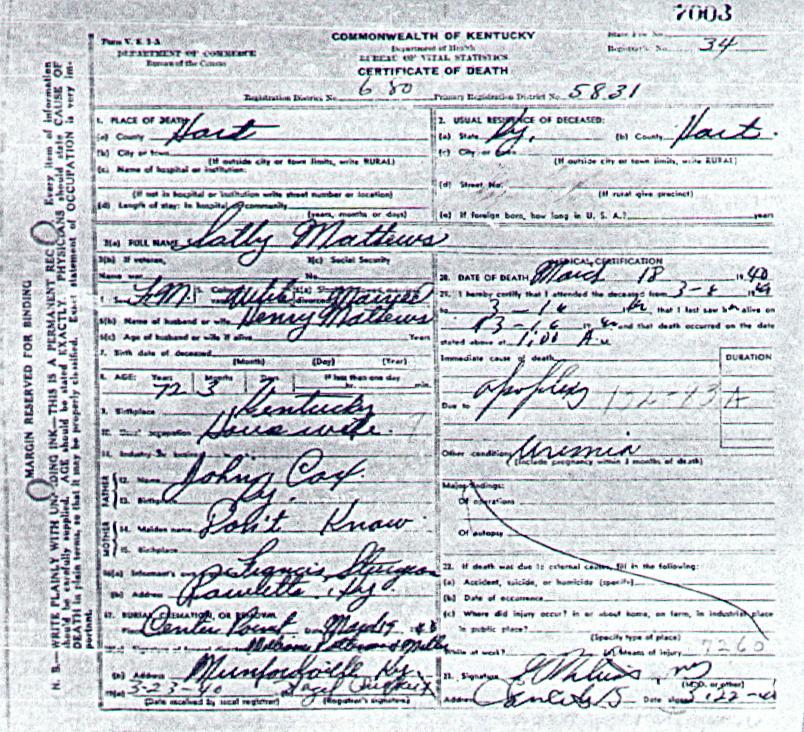 7003
Form V. S. 1-A
COMMONWEALTH OF KENTUCKY
State File No.
DEPARTMENT OF COMMERCE
Department of Health
Registrar's No. 34
Bureau of the Census
BUREAU OF VITAL STATISTICS
CERTIFICATE OF DEATH
Registration District No. 680 Primary Registration District No. 5831
MARGIN RESERVED FOR BINDING
N. B.—WRITE PLAINLY WITH UNFADING INK—THIS IS A PERMANENT REC Every item of information
should be carefully supplied. AGE should be stated EXACTLY. PHYSICIANS should state CAUSE OF
DEATH in plain terms, so that it may be properly classified. Exact statement of OCCUPATION is very im-
portant.
1. PLACE OF DEATH:
(a) County Hart
(b) City or town
(If outside city or town limits, write RURAL)
(c) Name of hospital or institution:
(If not in hospital or institution write street number or location)
(d) Length of stay: In hospital community
(years, months or days)
2. USUAL RESIDENCE OF DECEASED:
(a) State Ky. (b) County Hart.
(c) City or town
(If outside city or town limits, write RURAL)
(d) Street No.
(If rural give precinct)
(e) If foreign born, how long in U. S. A.? years
3(a) FULL NAME Sally Mathews
3(b) If veteran, 3(c) Social Security
Name war No.
4. Sex 5. Color White divorced Married
6(b) Name of husband or wife Henry Mathews
6(c) Age of husband or wife if alive Years
7. Birth date of deceased
(Month) (Day) (Year)
8. AGE: Years Months Days If less than one day
72 3 hr. min.
9. Birthplace Kentucky
10. Usual occupation House wife.
11. Industry or business
FATHER
12. Name John Cox
13. Birthplace Ky.
MOTHER
14. Maiden name Don't Know
15. Birthplace
16(a) Informant's Francis Sturgeon
(b) Address Rowletts, Ky.
17. BURIAL, CREMATION, OR REMOVAL
Center Point
(b) Address Munfordville Ky.
19(a) 3-23-40
(Date received by local registrar) (Registrar's signature)
MEDICAL CERTIFICATION
20. DATE OF DEATH March 18 1940
21. I hereby certify that I attended the deceased from 3-6
to 3-16 that I last saw h alive on
3-16 and that death occurred on the date
stated above at 1:00 A.
Immediate cause of death DURATION
Due to
Other conditions Uremia
(Include pregnancy within 3 months of death)
Major findings:
Of operations
Of autopsy
22. If death was due to external causes, fill in the following:
(a) Accident, suicide, or homicide (specify)
(b) Date of occurrence
(c) Where did injury occur? in or about home, on farm, in industrial place
in public place?
(Specify type of place)
While at work? Means of injury 7260
23. Signature
(M.D. or other)
Address Date signed 3-22-40